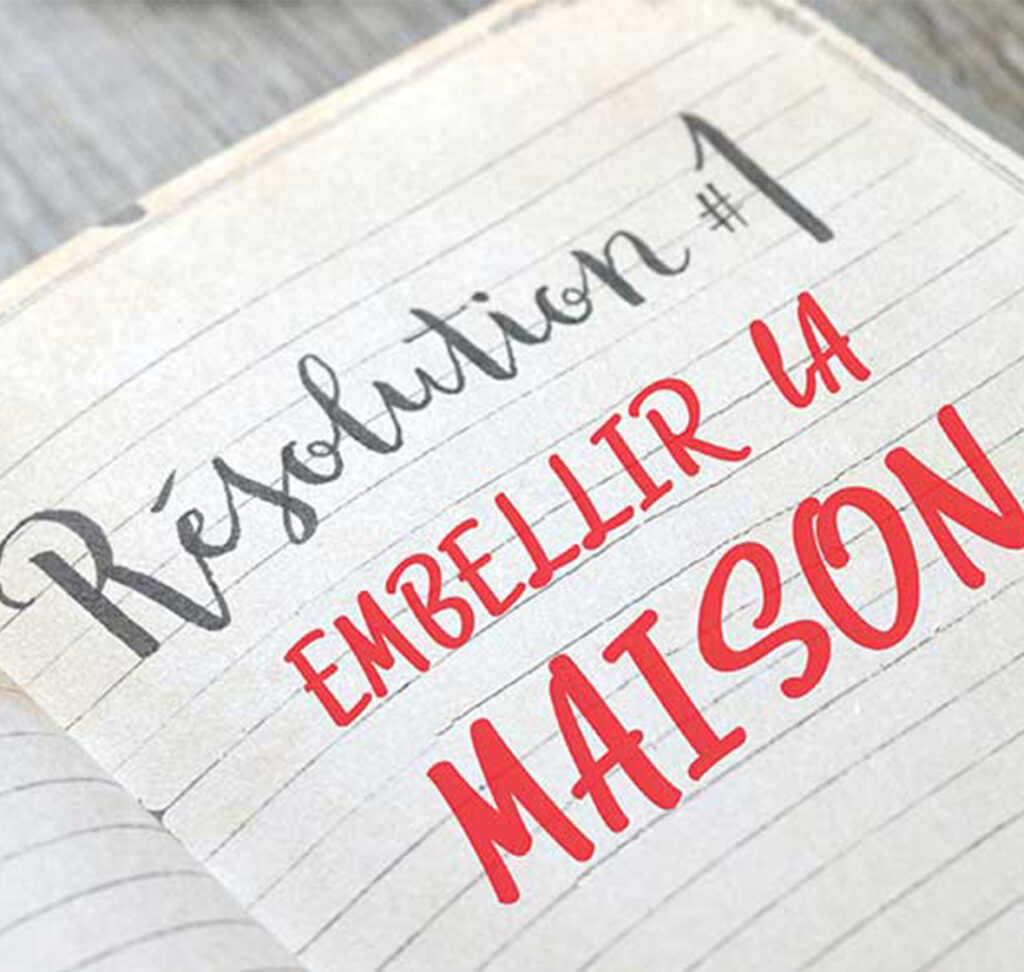 Résolution #1
EMBELLIR LA
MAISON